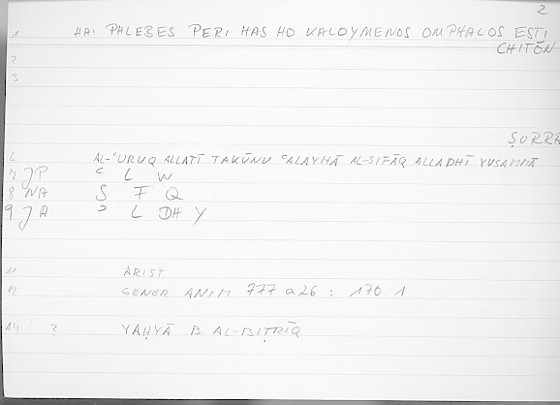 2
1 HAI PHLEBES PERI HAS HO KALOYMENOS OMPHALOS ESTI
CHITŌN
2
3
ṢURRA
6 AL-ʿURUQ ALLATĪ TAKŪNU ʿALAYHĀ AL-ṢIFĀQ ALLADHĪ YUSAMMĀ
7 JP ʿ L W
8 NA Ṣ F Q
9 JA ʾ L DH Y
11 ARIST
12 GENER ANIM 777 a 26 : 170. 1
14 ? YAḤYĀ B. AL-BIṬRĪQ